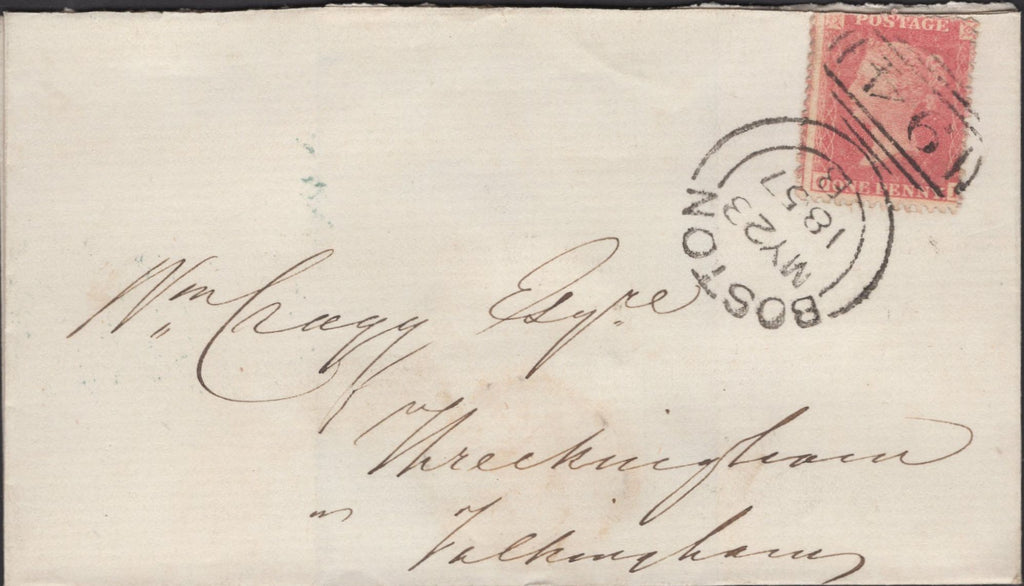 POSTAGE
ONE PENNY
BOSTON
MY 23
1857
B
Wm Cragg Esqre
Threckingham
Falkingham